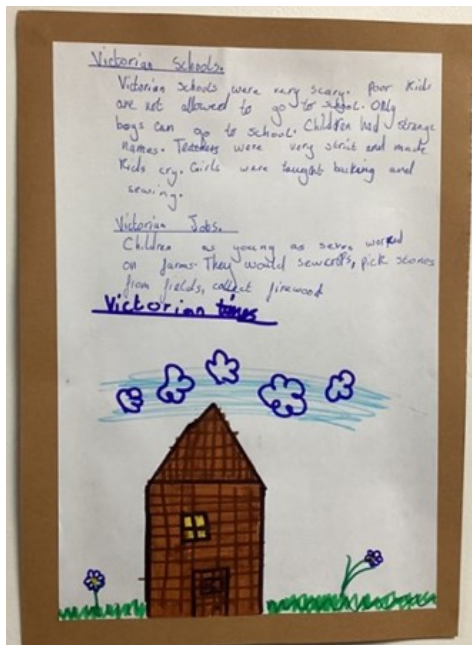 Victorian Schools.
Victorian schools were very scary. Poor kids
are not allowed to go to school. Only
boys can go to school. Children had strange
names. Teachers were very strict and made
kids cry. Girls were taught backing and
sewing.
Victorian Jobs.
Children as young as seven worked
on farms. They would sew crops, pick stones
from fields, collect firewood
Victorian times